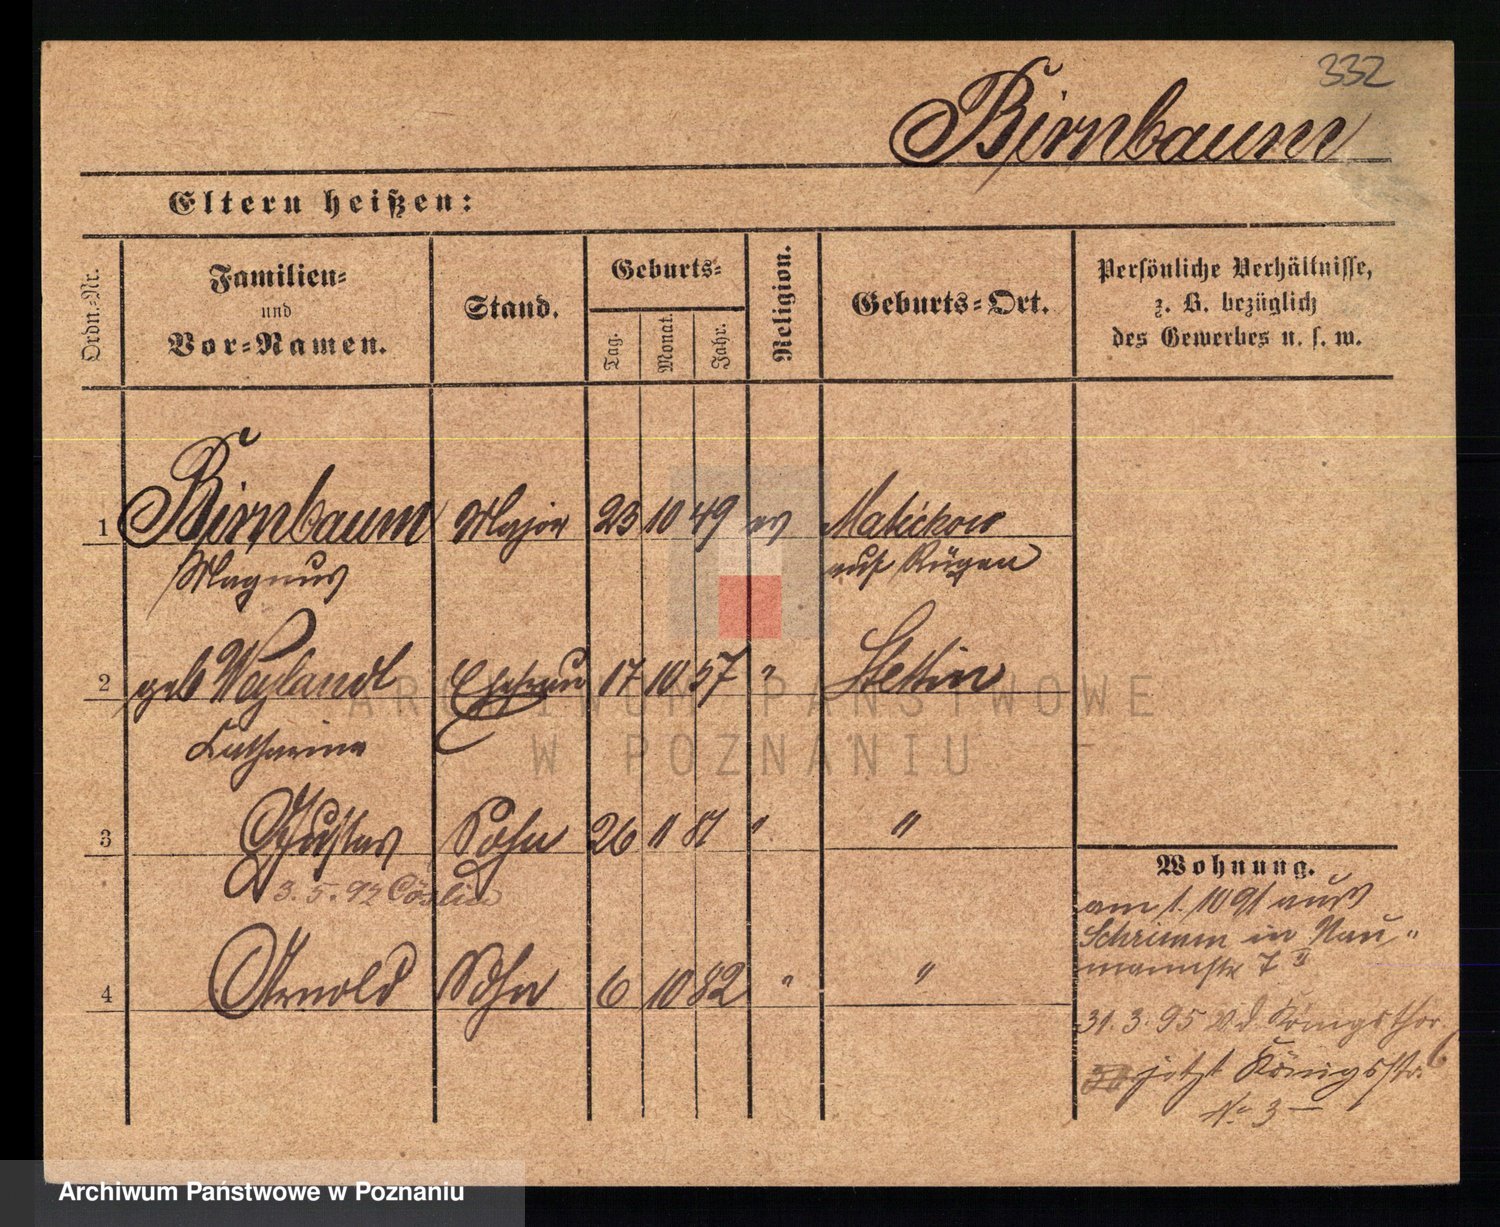 332
Birnbaum
Eltern heißen:
Ordn.-Nr.
Familien-
und
Vor-Namen.
Stand.
Geburts-
Tag.
Monat.
Jahr.
Religion.
Geburts-Ort.
Persönliche Verhältnisse,
z. B. bezüglich
des Gewerbes u. s. w.
1 Birnbaum Major 23 10 49 ev
Magnus auf Rügen
2 geb Weylandt Ehefrau 17 10 57 " Stettin
Catharina
3 Gustav Sohn 26 11 81 " "
3. 5. 92 Cöslin
4 Arnold Sohn 6 10 82 " "
Wohnung.
am 1. 10 91 aus
Schrimm in Nau"
mannstr 7 II
31. 3. 95 v. d. Königsthor 6
jetzt Königsstr.
No 3 —
ARCHIWUM PAŃSTWOWE
W POZNANIU
Archiwum Państwowe w Poznaniu